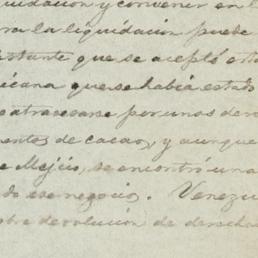 quidacion y convener en l
ra la liquidacion puede
stante que se aceptó esta
icana que se habia estado
atrasarse por unos dere
entos de cacao, y aunque
e Mejico, se encontró una
do ese negocio. Venezu
obre devolucion de derecho